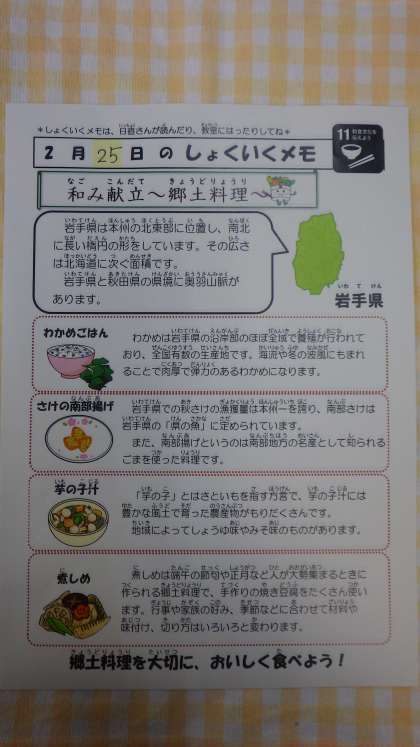 ＊しょくいくメモは、日直さんが読んだり、教室にはったりしてね＊
11 和食文化を伝えよう
2 月 25 日 の しょくいくメモ
和み献立～郷土料理～
岩手県は本州の北東部に位置し、南北
に長い楕円の形をしています。その広さ
は北海道に次ぐ面積です。
岩手県と秋田県の県境に奥羽山脈が
あります。
岩手県
わかめごはん
わかめは岩手県の沿岸部のほぼ全域で養殖が行われて
おり、全国有数の生産地です。海流や冬の波風にもまれ
ることで肉厚で弾力のあるわかめになります。
さけの南部揚げ
岩手県での秋さけの漁獲量は本州一を誇り、南部さけは
岩手県の「県の魚」に定められています。
また、南部揚げというのは南部地方の名産として知られる
ごまを使った料理です。
芋の子汁
「芋の子」とはさといもを指す方言で、芋の子汁には
豊かな風土で育った農産物がもりだくさんです。
地域によってしょうゆ味やみそ味のものがあります。
煮しめ
煮しめは端午の節句や正月など人が大勢集まるときに
作られる郷土料理で、手作りの焼き豆腐をたくさん使い
ます。行事や家族の好み、季節などに合わせて材料や
味付け、切り方はいろいろと変わります。
郷土料理を大切に、おいしく食べよう！